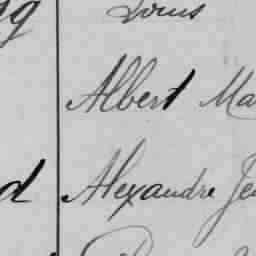 Louis
Albert Ma
d Alexandre Je